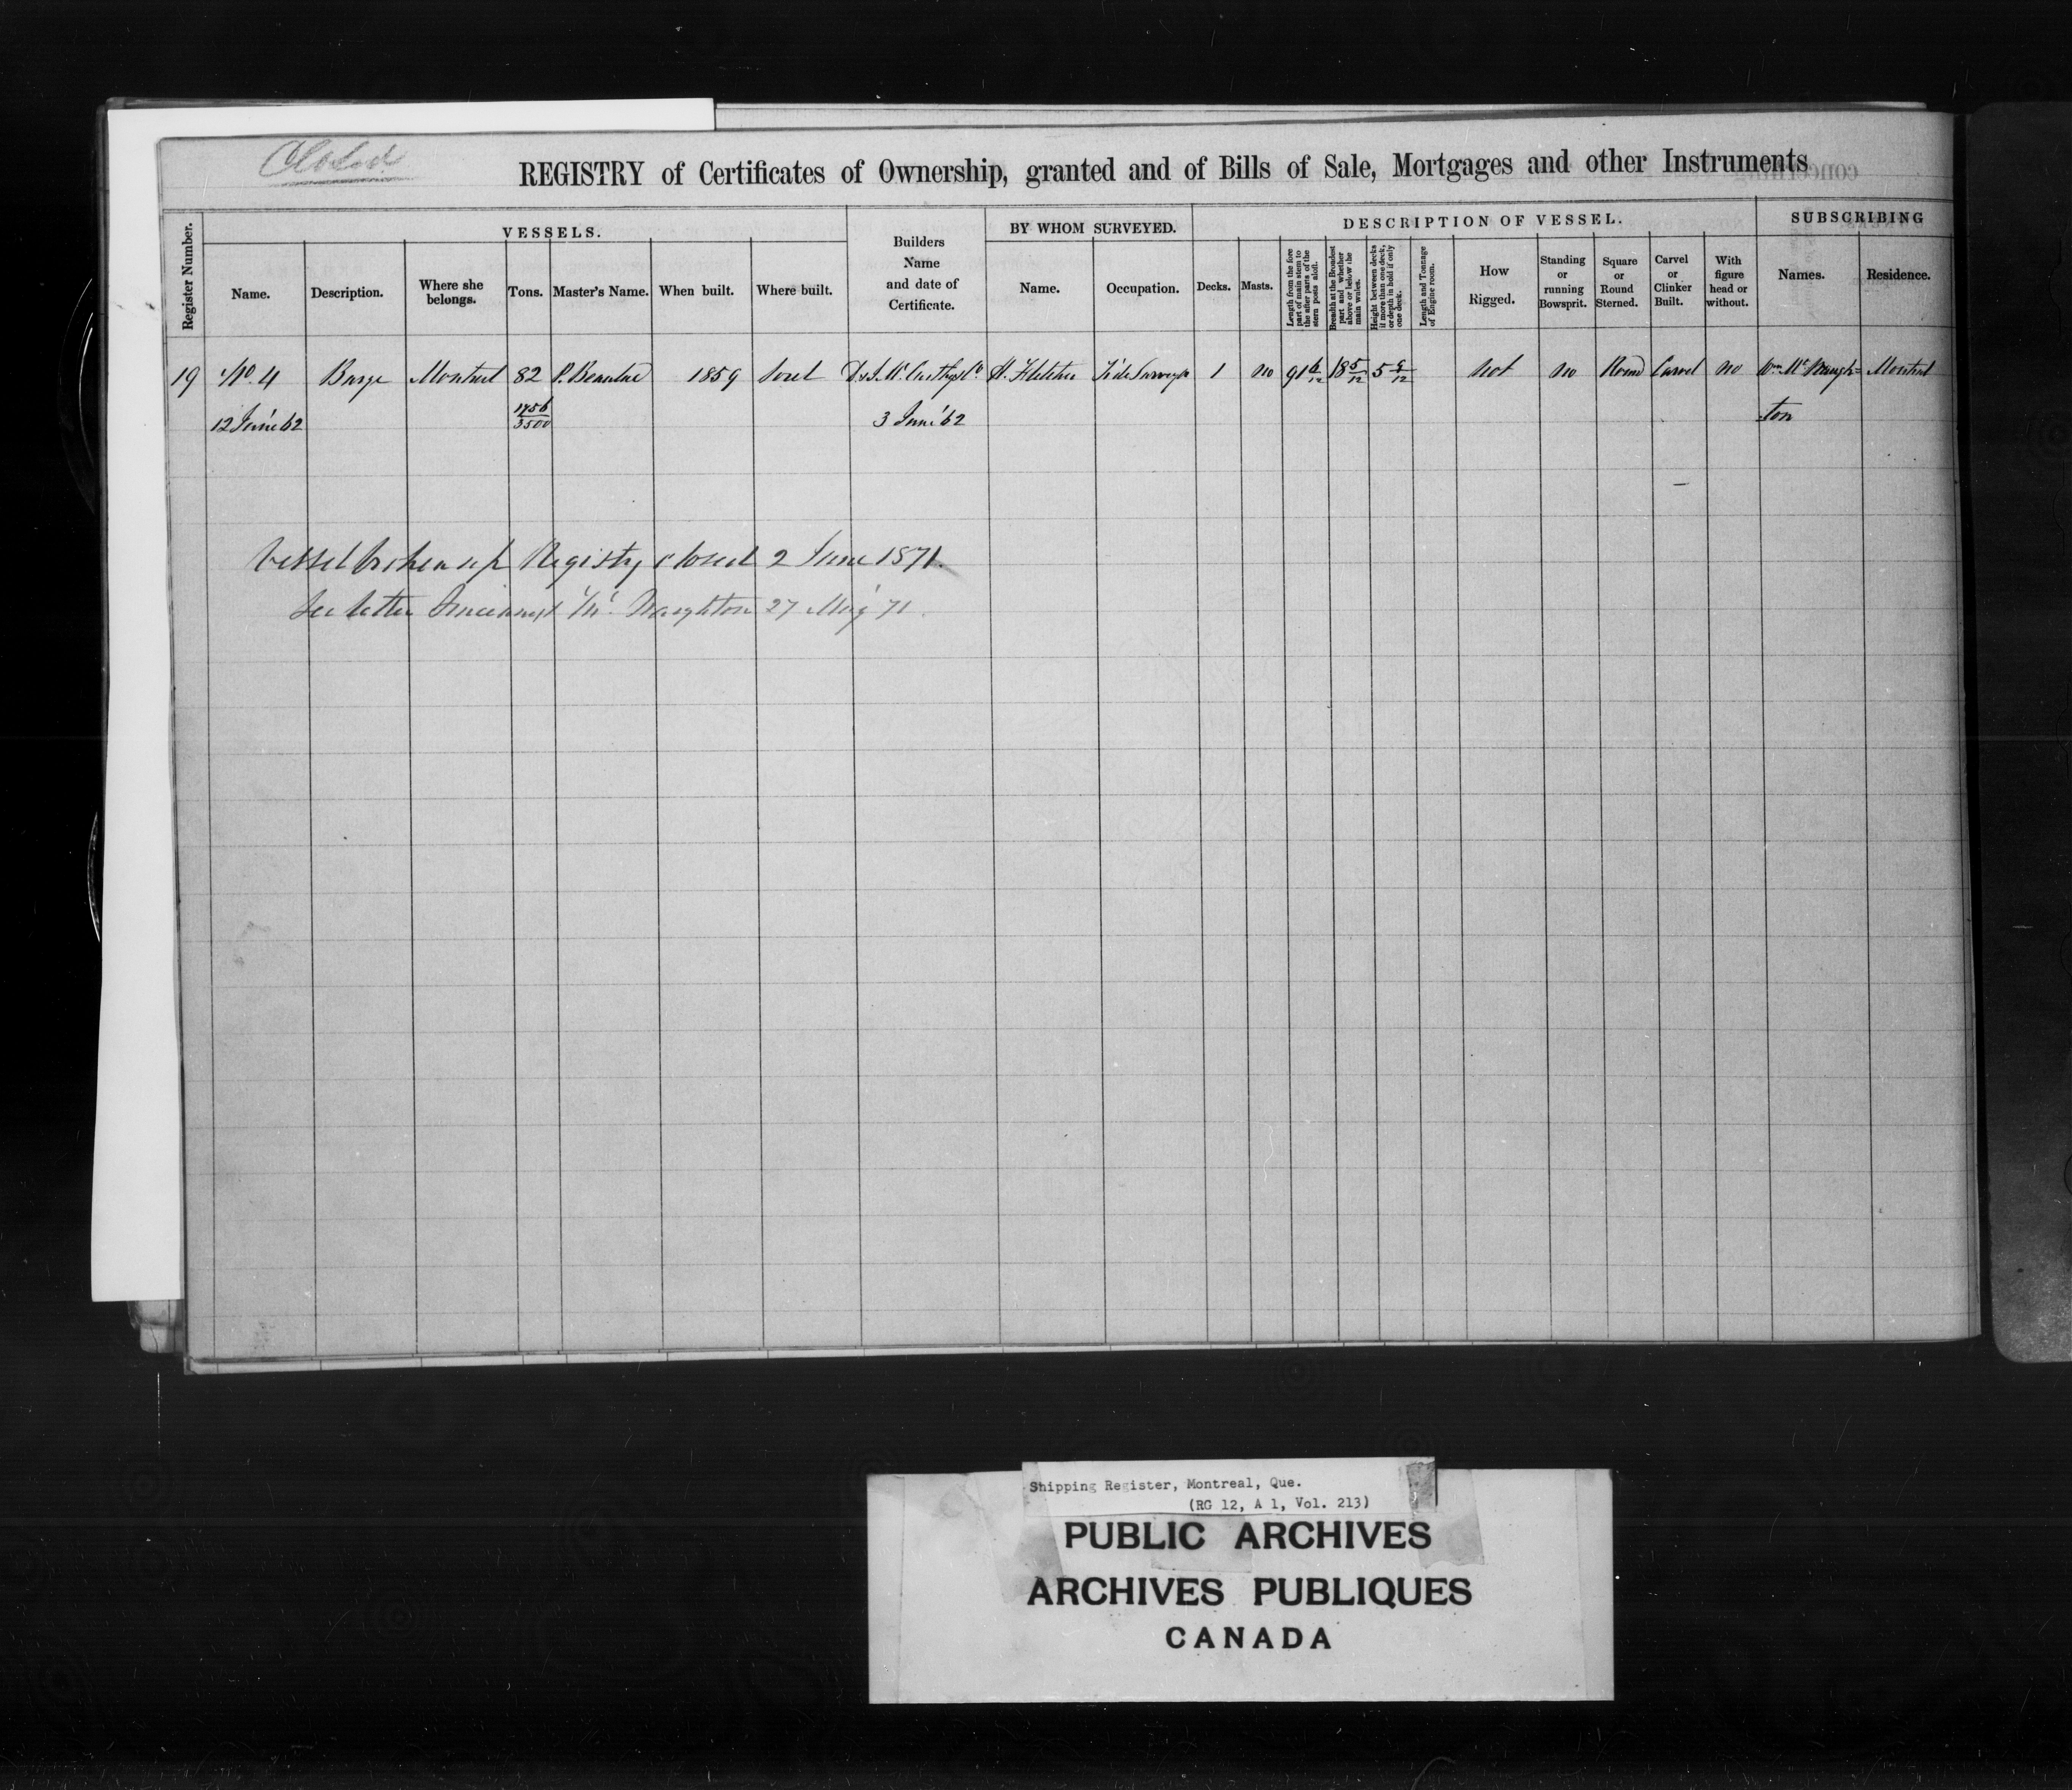 Closed
REGISTRY of Certificates of Ownership, granted and of Bills of Sale, Mortgages and other Instruments
Register Number.
VESSELS.
Name.
Description.
Where she belongs.
Tons.
Master's Name.
When built.
Where built.
Builders Name and date of Certificate.
BY WHOM SURVEYED.
Name.
Occupation.
DESCRIPTION OF VESSEL.
Decks.
Masts.
Length from the fore part of main stem to the after parts of the stern posts aloft.
Breadth at the Broadest part and whether above or below the main wales.
Height between decks if more than one deck, or depth in hold if only one deck.
Length and Tonnage of Engine room.
How Rigged.
Standing or running Bowsprit.
Square or Round Sterned.
Carvel or Clinker Built.
With figure head or without.
SUBSCRIBING
Names.
Residence.
19 No. 4 Barge Montreal 82 P. 1859 Sorel D & J. McCarthy & Co H. Fletcher Tide Surveyor 1 no 91 6/12 18 5/12 5 /12 not no Round Carvel no Wm McNaugh= Montreal
12 June 62 1756/3500 3 June 62 ton
Vessel broken up Registry closed 2 June 1871.
See letter Mc Naughton 27 May 71.
Shipping Register, Montreal, Que.
(RG 12, A 1, Vol. 213)
PUBLIC ARCHIVES
ARCHIVES PUBLIQUES
CANADA